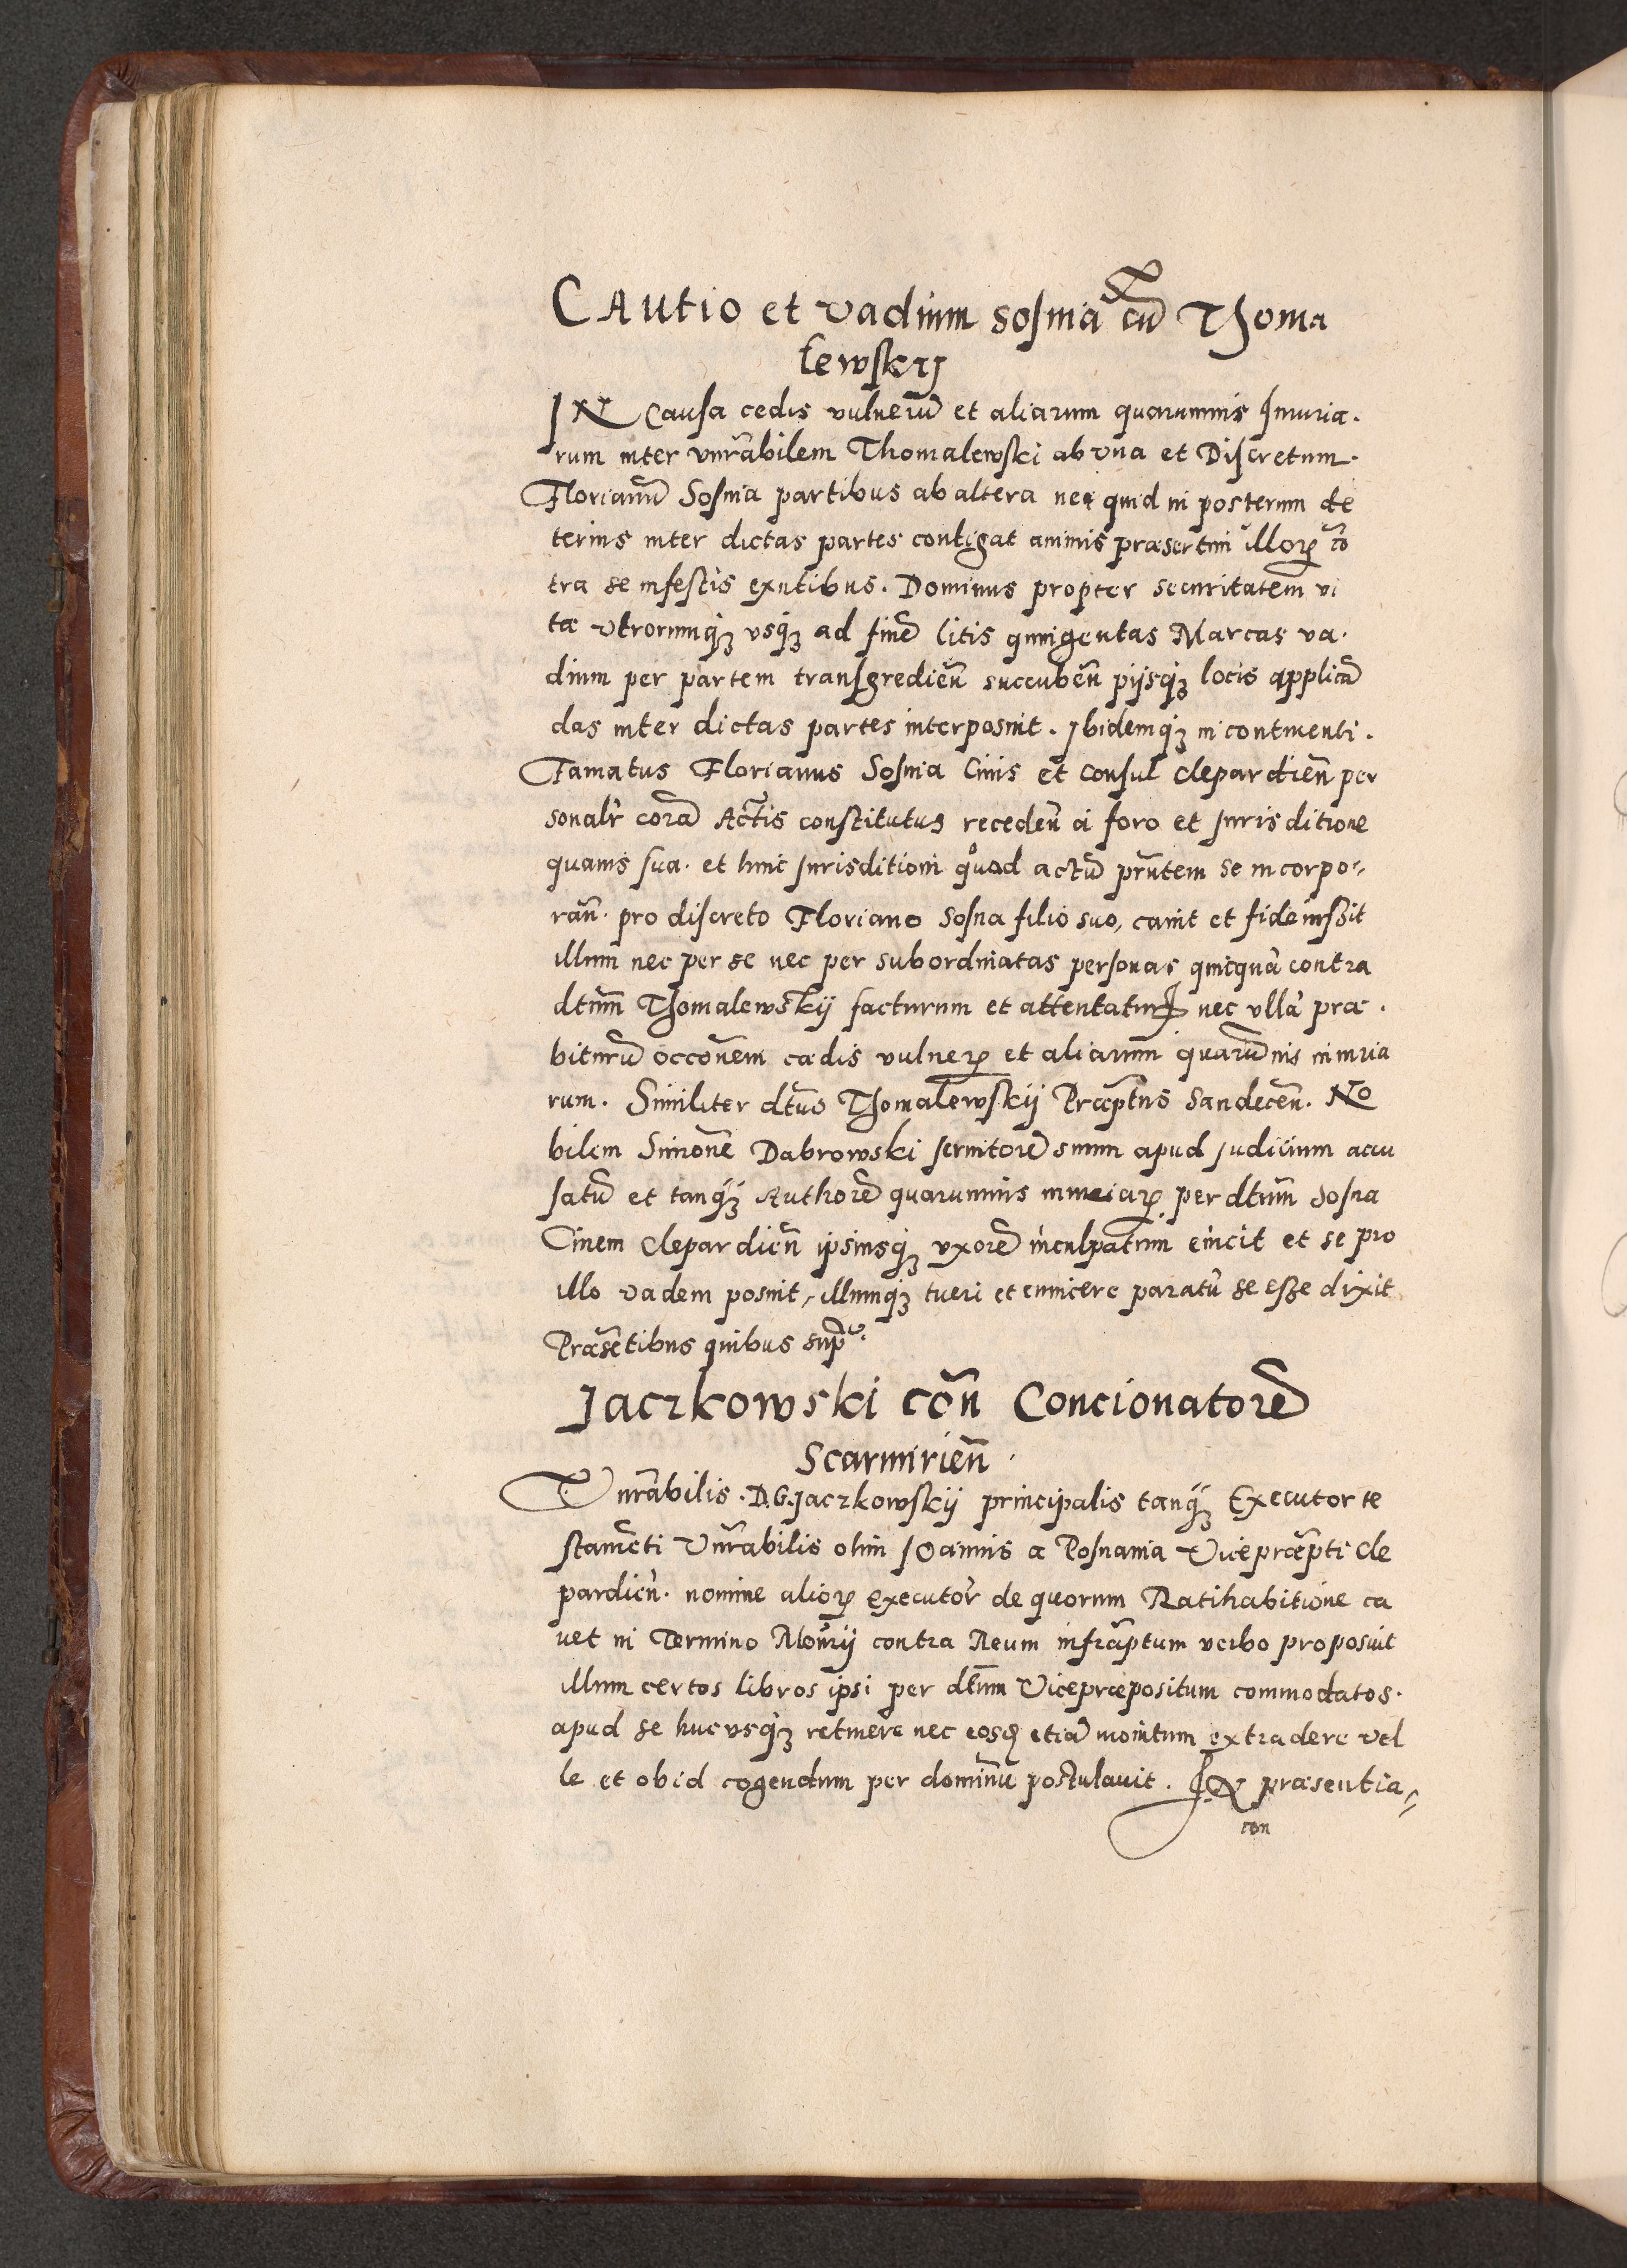 CAutio et vadium Sosnia cũ Thoma
lewskij
IN Causa cedis vulnerũ et aliarum quarumuis Iniuria.
rum inter vnrãbilem Thomalewski ab vna et Discretum.
Florianũ Sosnia partibus ab altera nec quid in posterum de
terius inter dictas partes contigat animis præsertim illorꝫ cõ
tra se infestis exñtibus. Dominus propter securitatem vi
tæ vtrorumqꝫ vsqꝫ ad finẽ litis quingentas Marcas va.
dium per partem transgredieñ succubeñ pijsqꝫ locis applicã
das inter dictas partes interposuit. Ibidemqꝫ in continenti.
Famatus Florianus Sosnia Ciuis et Consul Clepardieñ per
sonalr̃ corã Actis constitutus recedeñ a foro et Iurisditione
quauis sua. et huic Iurisditioni quoad actũ prñtem se incorpo-
rañ. pro discreto Floriano Sosna filio suo, cauit et fideiussit
illum nec per se nec per subordinatas personas quicquã contra
dtũm Thomalewskij facturum et attentatur̃ nec vllã præ.
biturũ occõnem cædis vulnerꝫ et aliarum quarũuis iniuria
rum. Similiter dtũs Thomalewskij Præptũs Sandeceñ. No
bilem Simonẽ Dabrowski seruitorẽ suum apud Iudicium accu
satũ et tanqꝫ Authorẽ quarumuis iniuriarꝫ per dtũm Sosna
Ciuem Clepardieñ ipsiusqꝫ vxorẽ inculpatum eiicit et se pro
illo vadem posuit, illumqꝫ tueri et euincere paratũ se esse dixit
Præsẽtibus quibus supr̃.
Jaczkowski coñ Concionatorẽ
Scarmirieñ.
Vnrãbilis. D.G. Jaczkowskij principalis tanqꝫ Executor te
stamẽti Vnrãbilis olim Ioannis a Posnania Vicepræpti Cle
pardieñ. nomine aliorꝫ executor̃ de quorum Ratihabitione ca
uet in Termino Moñrij contra Reum infrãptum verbo proposuit
illum certos libros ipsi per dtũm Vicepræpositum commodatos.
apud se hucusqꝫ retinere nec eosꝗ etiã monitum extradere vel
le et ob id cogendum per dominũ postulauit. IN præsentia-
con